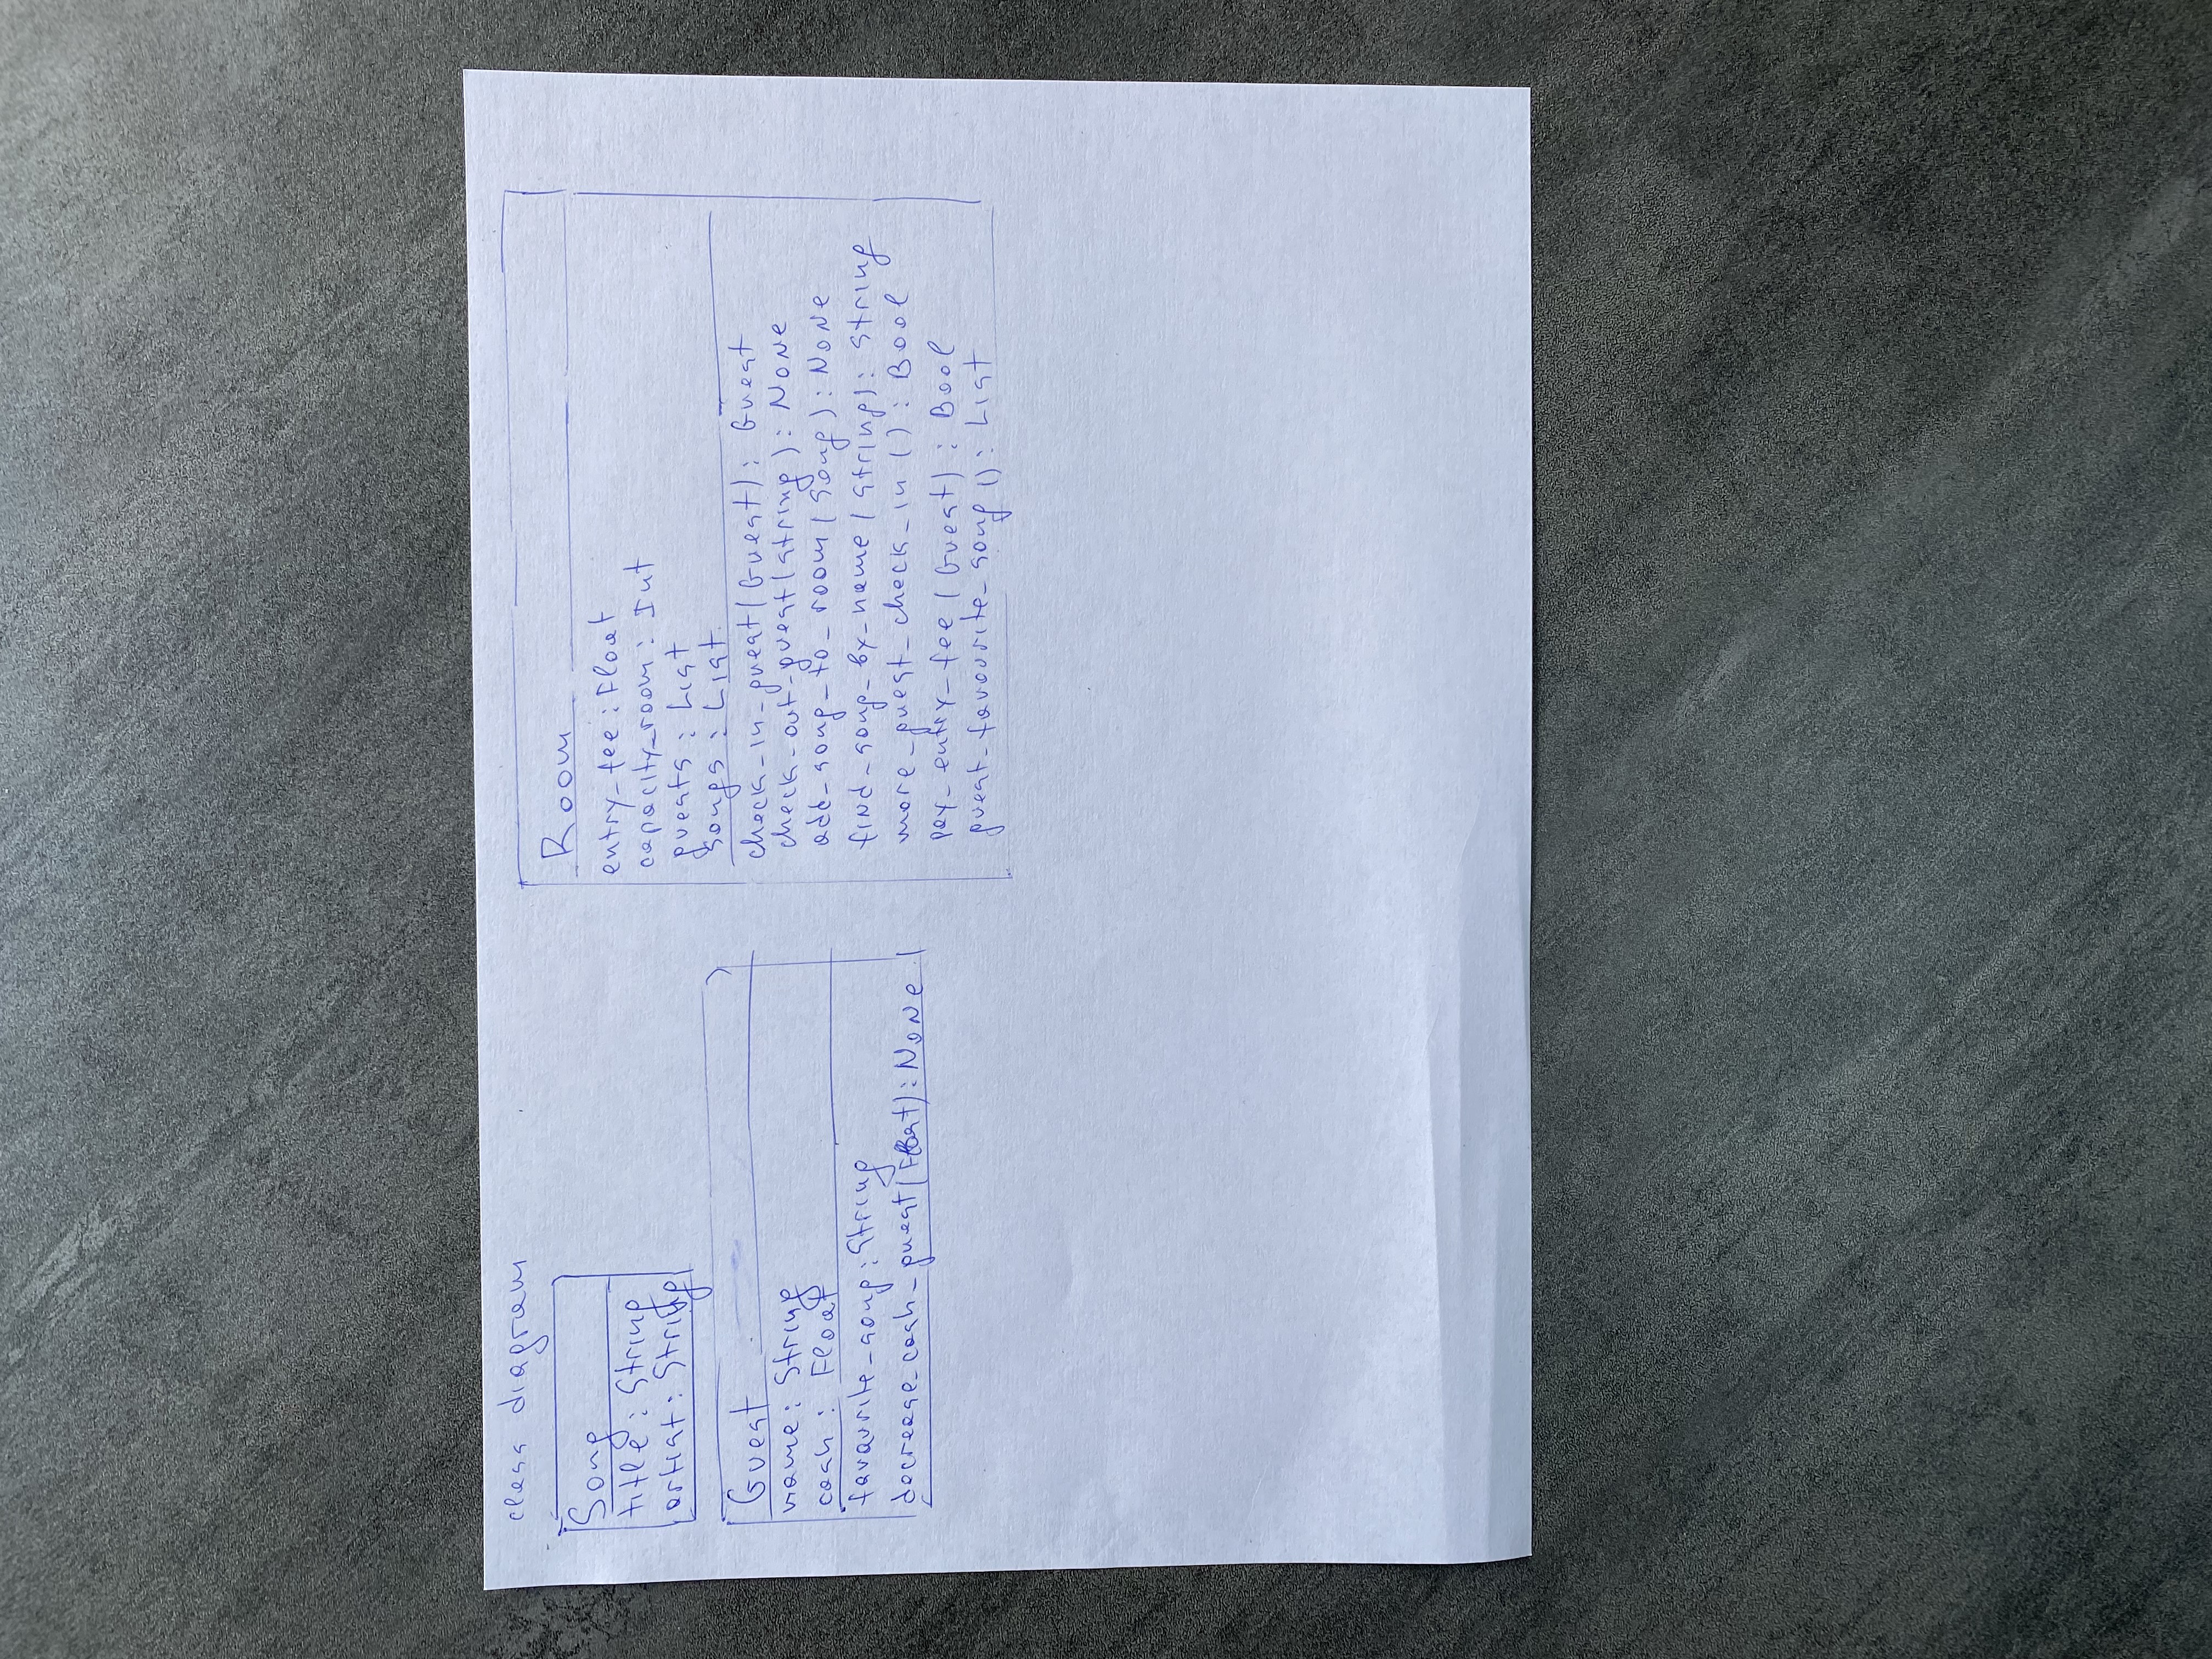 class diagram
Song
title: String
artist: String
Guest
name: String
cash: Float
favourite_song: String
decrease_cash_guest(Float): None
Room
entry_fee: Float
capacity_room: Int
guests: List
songs: List
check_in_guest(Guest): Guest
check_out_guest(string): None
add_song_to_room(Song): None
find_song_by_name(string): string
more_guest_check_in(): Bool
pay_entry_fee(Guest): Bool
guest_favourite_song(): List